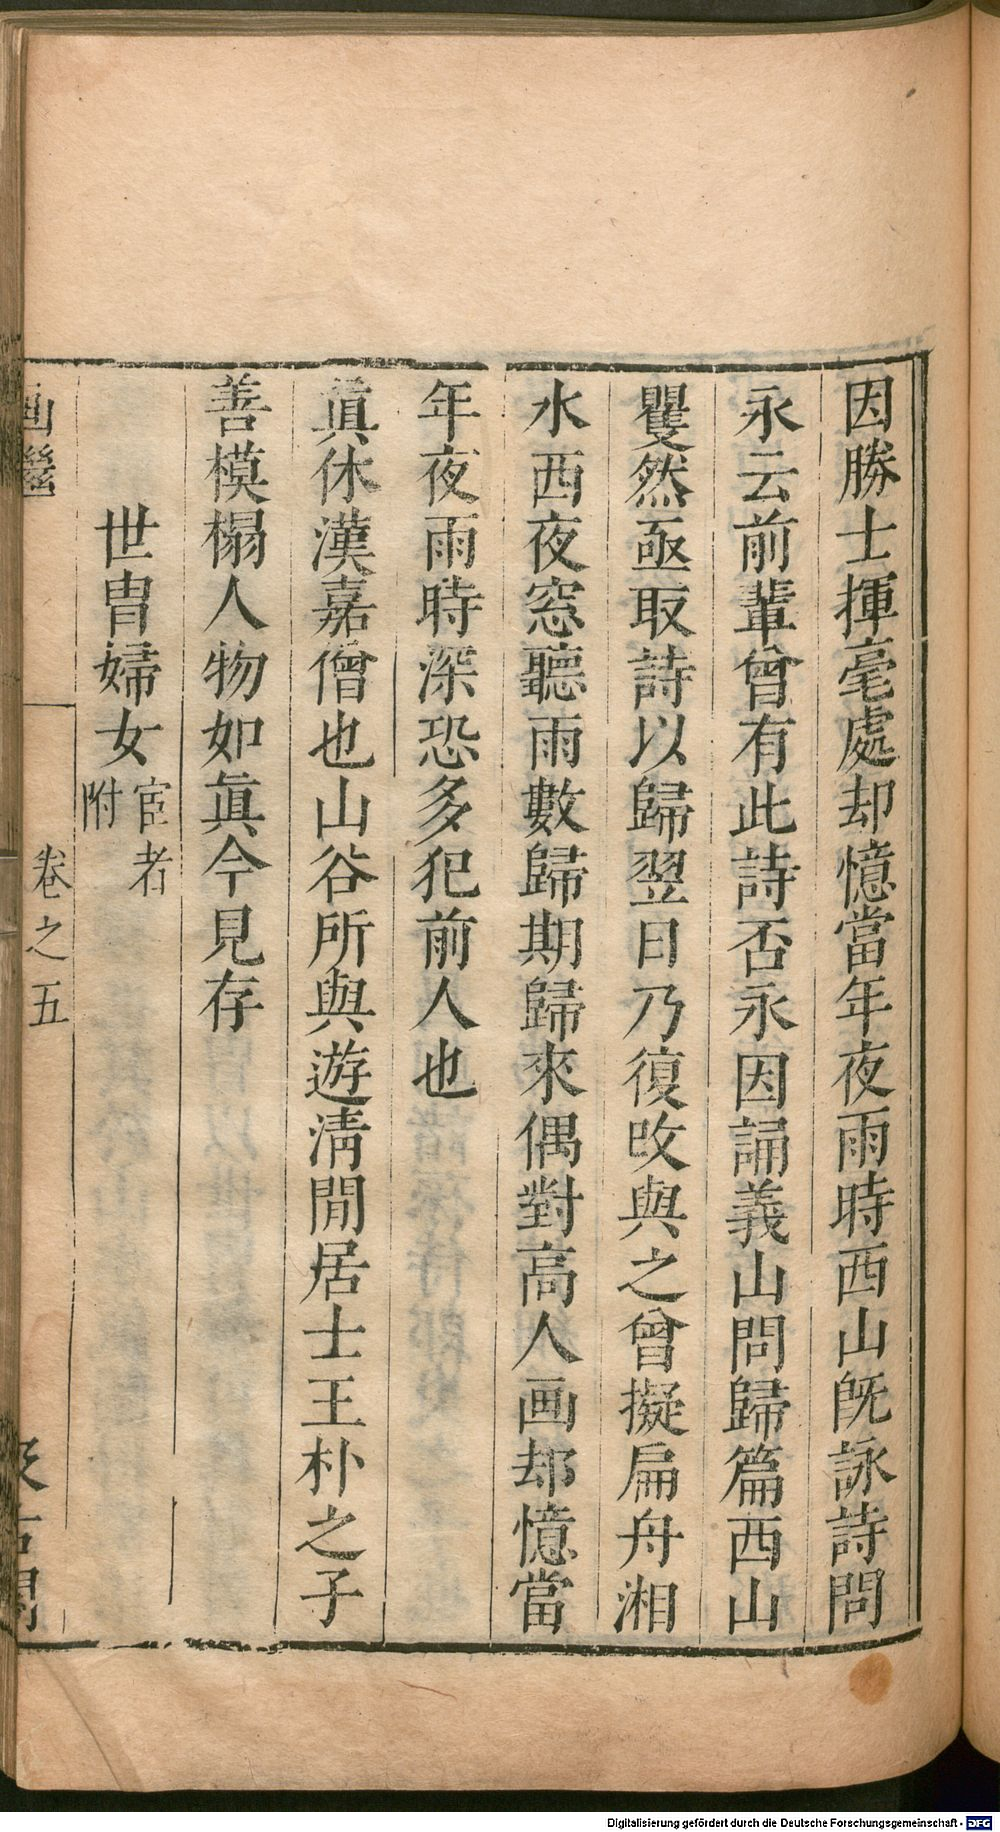 因勝士揮毫處却憶當年夜雨時西山旣詠詩問
永云前輩曾有此詩否永因誦義山問歸篇西山
矍然亟取詩以歸翌日乃復改與之曾擬扁舟湘
水西夜窓聽雨數歸期歸來偶對高人画却憶當
年夜雨時深恐多犯前人也
眞休漢嘉僧也山谷所與遊淸閒居士王朴之子
善模榻人物如眞今見存
世冑婦女
宦者
附
画繼
卷之五
汲古閣
Digitalisierung gefördert durch die Deutsche Forschungsgemeinschaft - DFG